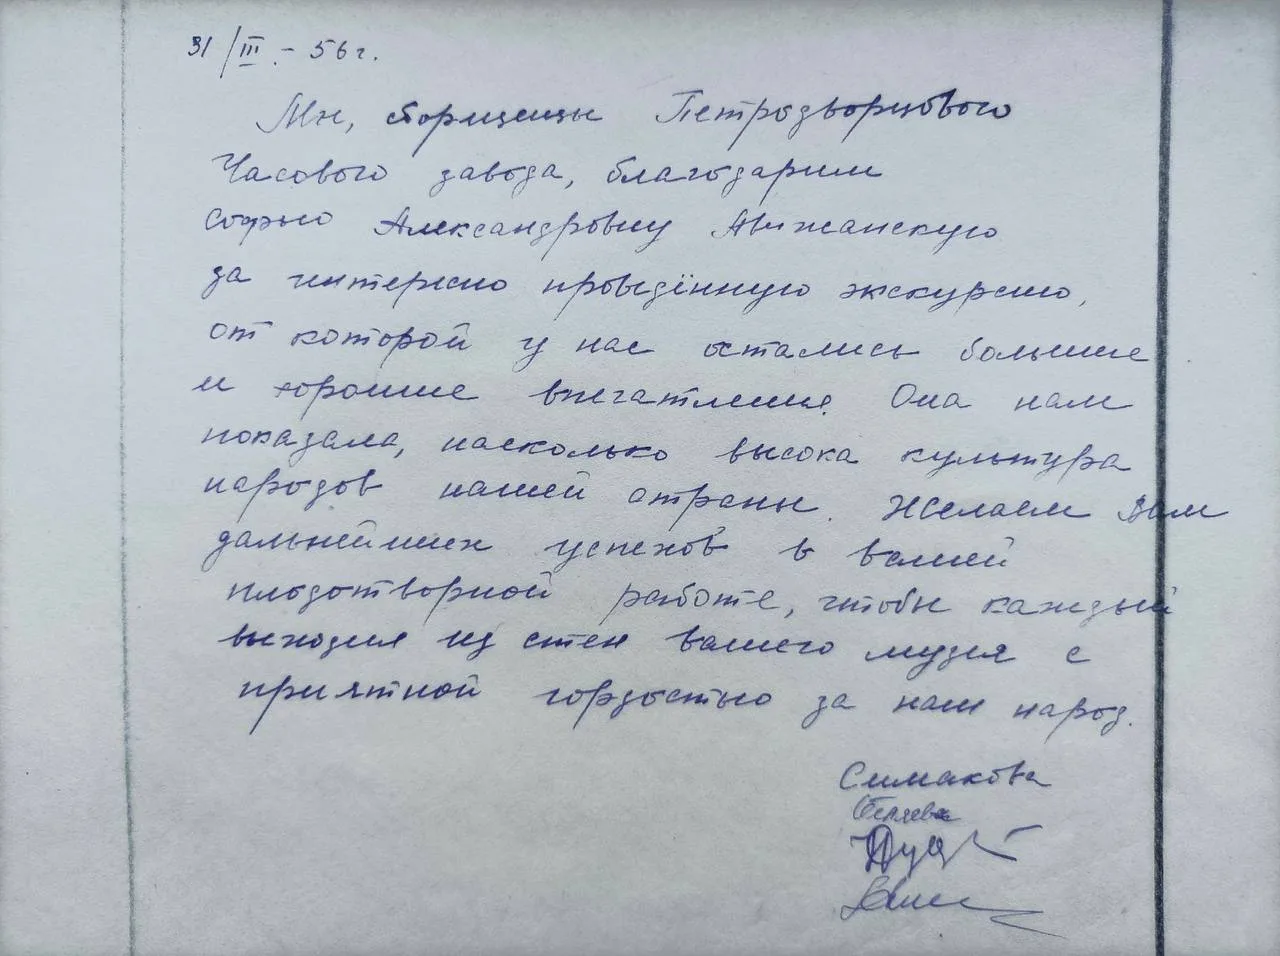 31/III - 56 г.
Мы, сборщицы Петродворцового
Часового завода, благодарим
Софью Александровну Авижанскую
за интересно проведённую экскурсию,
от которой у нас остались большие
и хорошие впечатления. Она нам
показала, насколько высока культура
народов нашей страны. Желаем Вам
дальнейших успехов в вашей
плодотворной работе, чтобы каждый
выходил из стен вашего музея с
приятной гордостью за наш народ.
Симакова
Беляева